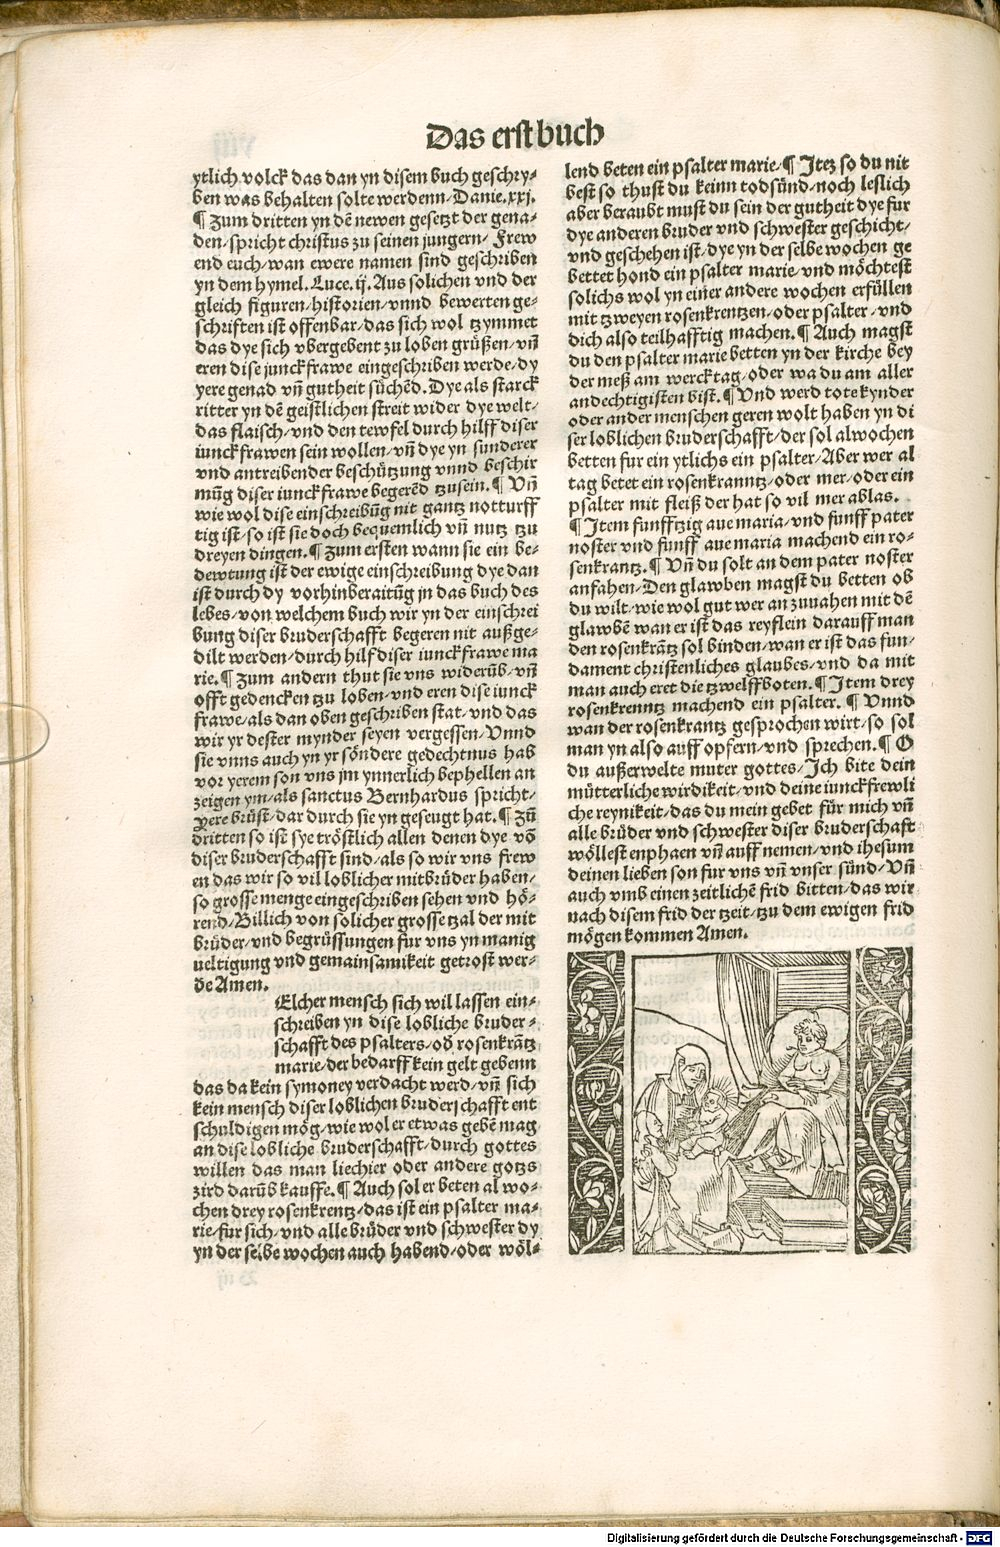 Das erst buch
ytlich volck das dan yn disem buch geschry⸗
ben was behalten solte werdenn/Danie.xxj.
¶ Zum dritten yn dē newen gesetzt der gena⸗
den/spricht christus zu seinen jungern/ Frew
end euch/wan ewere namen sind geschriben
yn dem hymel. Luce.ij. Aus solichen vnd der
gleich figuren/historien/vnnd bewerten ge⸗
schriften ist offenbar/das sich wol tzymmet
das dye sich vbergebent zu loben grüßen/vn̄
eren dise junckfrawe eingeschriben werde/dy
yere genad vn̄ gutheit süchēd. Dye als starck
ritter yn dē geistlichen streit wider dye welt/
das flaisch/vnd den tewfel durch hilff diser
iunckfrawen sein wollen/vn̄ dye yn sunderer
vnd antreibender beschützung vnnd beschir
mūg diser iunckfrawe begerēd tzusein. ¶ Vn̄
wie wol dise einschreibūg nit gantz notturff
tig ist/so ist sie doch bequemlich vn̄ nutz tzu
dreyen dingen. ¶ Zum ersten wann sie ein be⸗
dewtung ist der ewige einschreibung dye dan
ist durch dy vorhinberaitūg jn das buch des
lebes/von welchem buch wir yn der einschrei
bung diser bruderschafft begeren nit außge⸗
dilt werden/durch hilf diser iunckfrawe ma
rie. ¶ Zum andern thut sie vns widerūb/vn̄
offt gedencken tzu loben/vnd eren dise iunck
frawe/als dan oben geschriben stat/vnd das
wir yr dester mynder seyen vergessen/Vnnd
sie vnns auch yn yr söndere gedechtnus hab
vor yerem son vns jm ynnerlich bephellen an
zeigen ym/als sanctus Bernhardus spricht/
yere brüst/dar durch sie yn geseugt hat. ¶ Zū
dritten so ist sye tröstlich allen denen dye vō
diser bruderschafft sind/als so wir vns frew
en das wir so vil loblicher mitbrüder haben/
so grosse menge eingeschriben sehen vnd hö⸗
rend/Billich von solicher grosse tzal der mit
brüder/vnd begrüssungen fur vns yn manig
ueltigung vnd gemainsamikeit getrost wer⸗
dē Amen.
Elcher mensch sich wil lassen ein⸗
schreiben yn dise lobliche bruder⸗
schafft des psalters/od̄ rosenkrātz
marie/der bedarff kein gelt gebenn
das da kein symoney verdacht werd/vn̄ sich
kein mensch diser loblichen bruderschafft ent
schuldigen mög/wie wol er etwas gebē mag
an dise lobliche bruderschafft/durch gottes
willen das man liechier oder andere gotzs
zird darūb kauffe. ¶ Auch sol er beten al wo⸗
chen drey rosenkrentz/das ist ein psalter ma⸗
rie/fur sich/vnd alle brüder vnd schwester dy
yn der selbe wochen auch habend/oder wöl⸗
lend beten ein psalter marie/¶ Itez so du nit
best so thust du keinn todsünd/noch leslich
aber beraubt must du sein der gutheit dye fur
dye anderen bruder vnd schwester geschicht/
vnd geschehen ist/dye yn der selbe wochen ge
bettet hond ein psalter marie/vnd möchtest
solichs wol yn einer andere wochen erfüllen
mit tzweyen rosenkrentzen/oder psalter/vnd
dich also teilhafftig machen. ¶ Auch magst
du den psalter marie betten yn der kirche bey
der meß am wercktag/oder wa du am aller
andechtigisten bist. ¶ Vnd werd tote kynder
oder ander menschen geren wolt haben yn di
ser loblichen bruderschafft/der sol alwochen
betten fur ein ytlichs ein psalter/Aber wer al
tag betet ein rosenkranntz/oder mer/oder ein
psalter mit fleiß der hat so vil mer ablas.
¶ Item funfftzig aue maria/vnd funff pater
noster vnd funff aue maria machend ein ro⸗
senkrantz. ¶ Vn̄ du solt an dem pater noster
anfahen/Den glawben magst du betten ob
du wilt/wie wol gut wer an zuuahen mit dē
glawbē wan er ist das reyflein darauff man
den rosenkrātz sol binden/wan er ist das fun/
dament christenliches glaubes/vnd da mit
man auch eret die tzwelffboten. ¶ Item drey
rosenkrenntz machend ein psalter. ¶ Vnnd
wan der rosenkrantz gesprochen wirt/so sol
man yn also auff opfern/vnd sprechen. ¶ O
du außerwelte muter gottes/Ich bite dein
mütterliche wirdikeit/vnd deine iunckfrewli
che reynikeit/das du mein gebet für mich vn̄
alle brüder vnd schwester diser bruderschaft
wöllest enphaen vn̄ auff nemen/vnd ihesum
deinen lieben son fur vns vn̄ vnser sünd/Vn̄
auch vmb einen zeitlichē frid bitten/das wir
nach disem frid der tzeit/tzu dem ewigen frid
mögen kommen Amen.
Digitalisierung gefördert durch die Deutsche Forschungsgemeinschaft - DFG